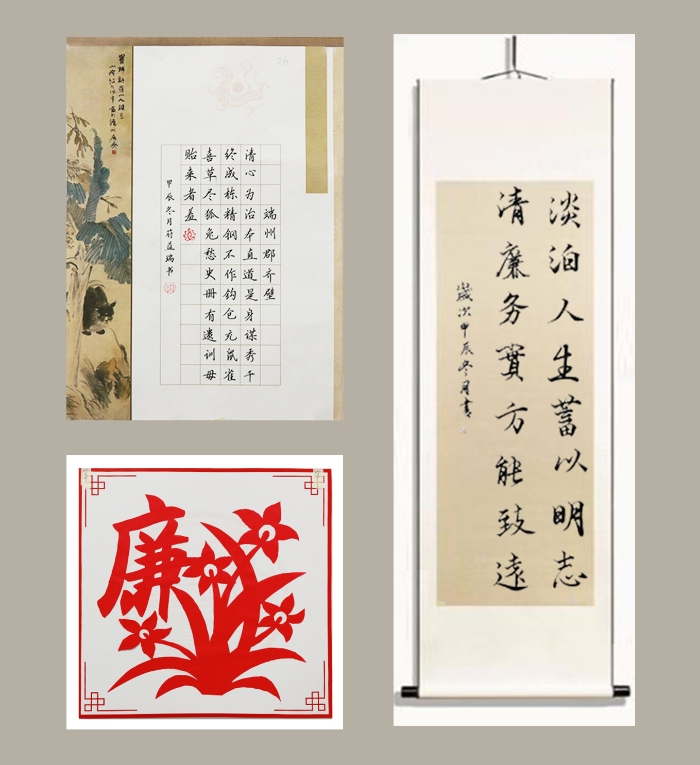 端州郡斋壁
清心为治本直道是身谋秀干
终成栋精钢不作钩仓充鼠雀
喜草尽狐兔愁史册有遗训毋
贻来者羞
甲辰冬月符益瑞书
淡泊人生蓄以明志
清廉务實方能致遠
歲次甲辰冬月書
廉